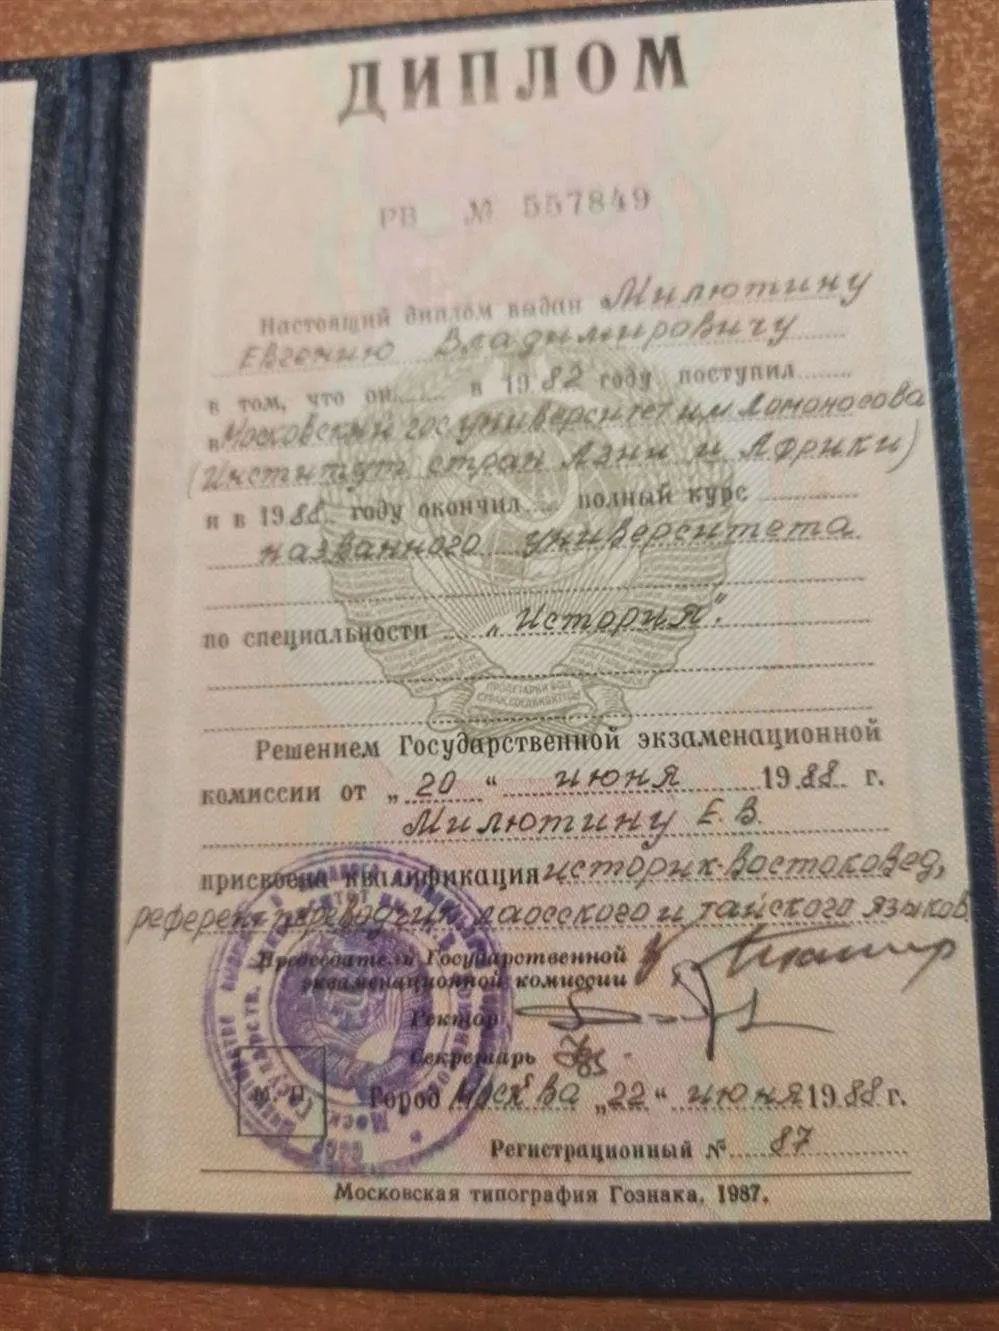 ДИПЛОМ
РВ № 557849
Настоящий диплом выдан Милютину
Евгению Владимировичу
в том, что он в 1982 году поступил
в Московский госуниверситет им Ломоносова
(Институт стран Азии и Африки)
и в 1988 году окончил полный курс
названного университета
по специальности „История".
Решением Государственной экзаменационной
комиссии от „20" июня 1988 г.
Милютину Е.В.
присвоена квалификация историк-востоковед,
референт-переводчик лаосского и тайского языков.
Председатель Государственной
экзаменационной комиссии
Ректор
Секретарь
М. П.
Город Москва „22" июня 1988 г.
Регистрационный № 87
Московская типография Гознака. 1987.